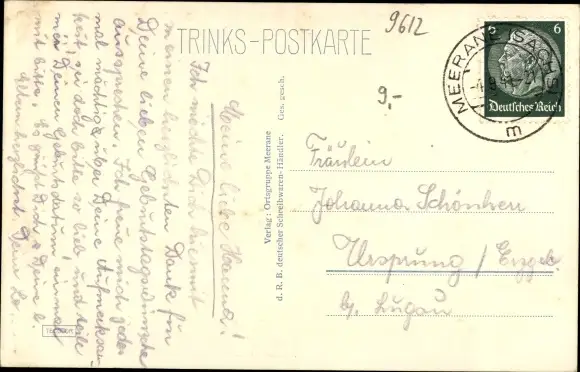 TRINKS-POSTKARTE
9612
9,-
6 6
Deutsches Reich
MEERANE (SACHS
m
Meine liebe Hanna!
Ich möchte Dir hiermit
meinen herzlichsten Dank für
Deine lieben Geburtstagswünsche
aussprechen. Ich freue mich jedes
mal mächtig über Deine Aufmerksam
keit, sei doch bitte so lieb und teile
mir Deinen Geburtsdatum einmal
mit bitte. Es grüßt Dich u. Deine l.
Eltern herzlichst Dein
Verlag: Ortsgruppe Meerane
d. R. B. deutscher Schreibwaren-Händler. Ges. gesch.
Fräulein
Johanna Schönherr
Ursprung / Erzgeb.
bz. Lugau